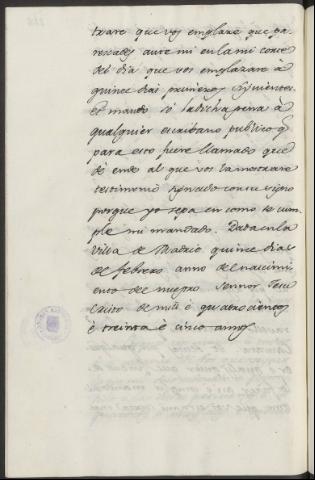 trare que vos emplare que pa
rescades ante mi en la mi corte
del dia que vos emplazare à
quince dias primeros siguientes
et mando só la dicha pena à
qualquier escribano publico q̃
para esto fuere llamado que
dé ende al que vos la mostrare
testimonio signado con su signo
porque yo sepa en como se cum
ple mi mandado. Dada en la
villa de Madrid quince dias
de febrero anno del nascimi
ento del nuestro sennor Jesu
Cristo de mill è quatrocientos
è treinta è cinco annos